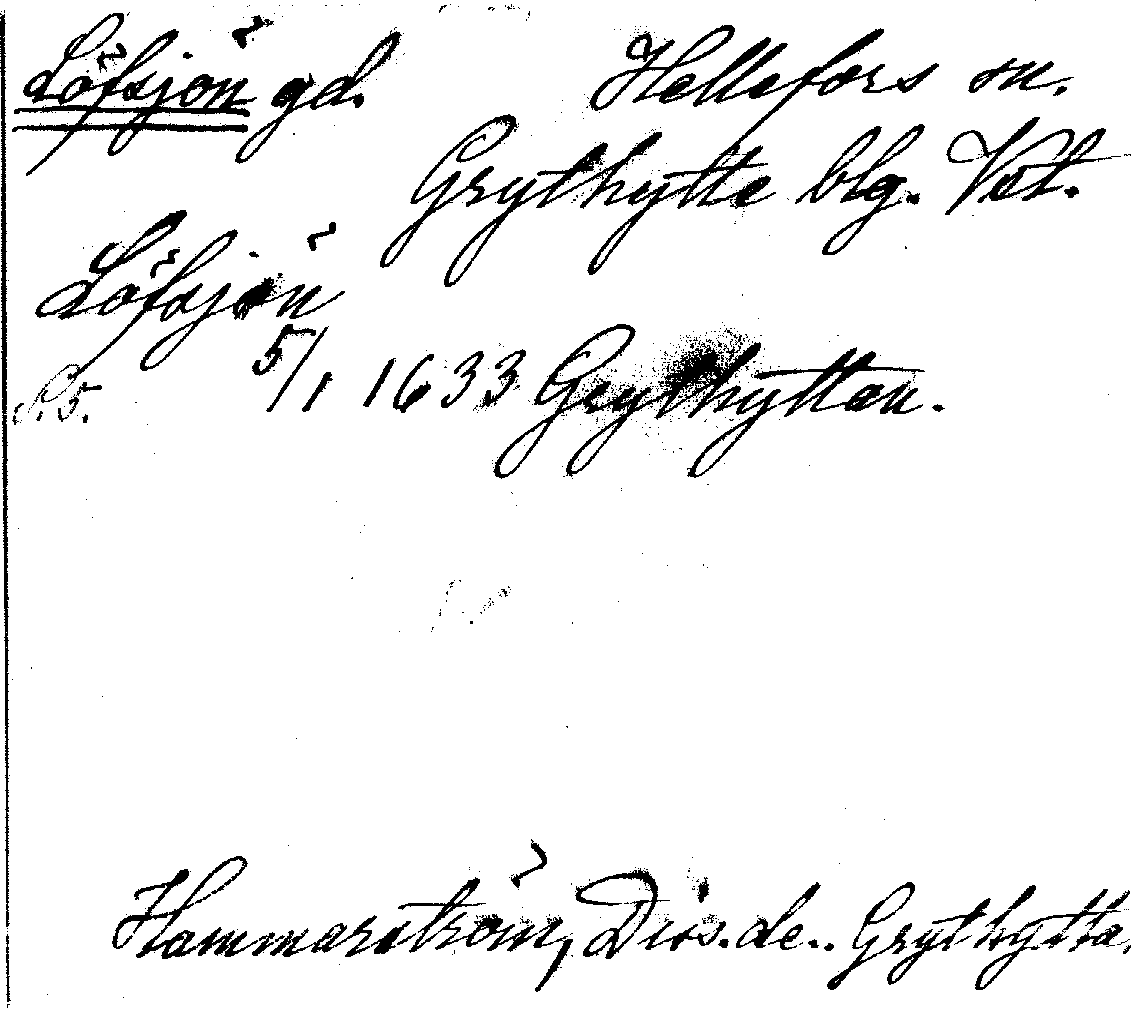 Löfsjön gd. Hellefors sn.
Grythytte blg. Vstl.
Löfsjön
S. 5. 5/1 1633 Grythyttan.
Hammarström, Diss. de.. Grythytta.